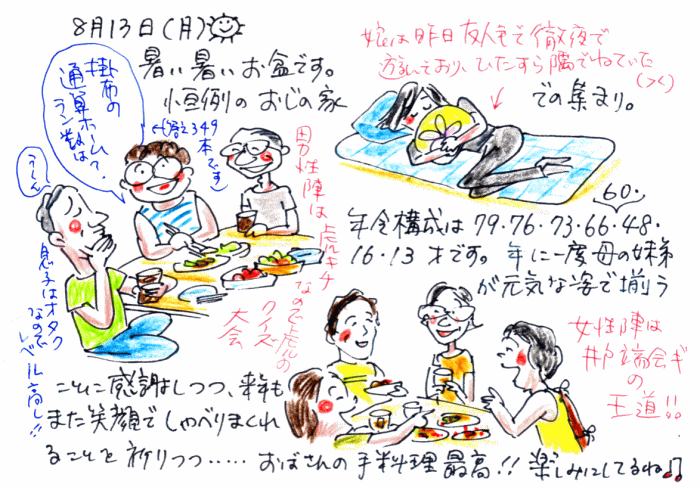 8月13日(月)
暑い暑いお盆です。
恒例のおじの家
での集まり。
娘は昨日友人宅で徹夜で
遊んでおり、ひたすら隅でねていた
掛布の
通算ホームラン数は
(答え349本です)
うーん
息子はオタク
なので
レベル高し!!
男性陣は虎キチ
なので虎の
クイズ
大会
60・
年令構成は79・76・73・66・48・
16・13才です。年に一度母の姉弟
が元気な姿で揃う
女性陣は
井戸端会ギ
の
王道!!
ことに感謝しつつ、来年も
また笑顔でしゃべりまくれ
ることを祈りつつ……おばさんの手料理最高!!楽しみにしてるね♫